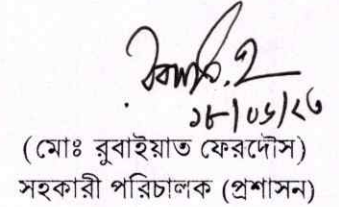 ১৮/০৬/২৩
(মোঃ রুবাইয়াত ফেরদৌস)
সহকারী পরিচালক (প্রশাসন)